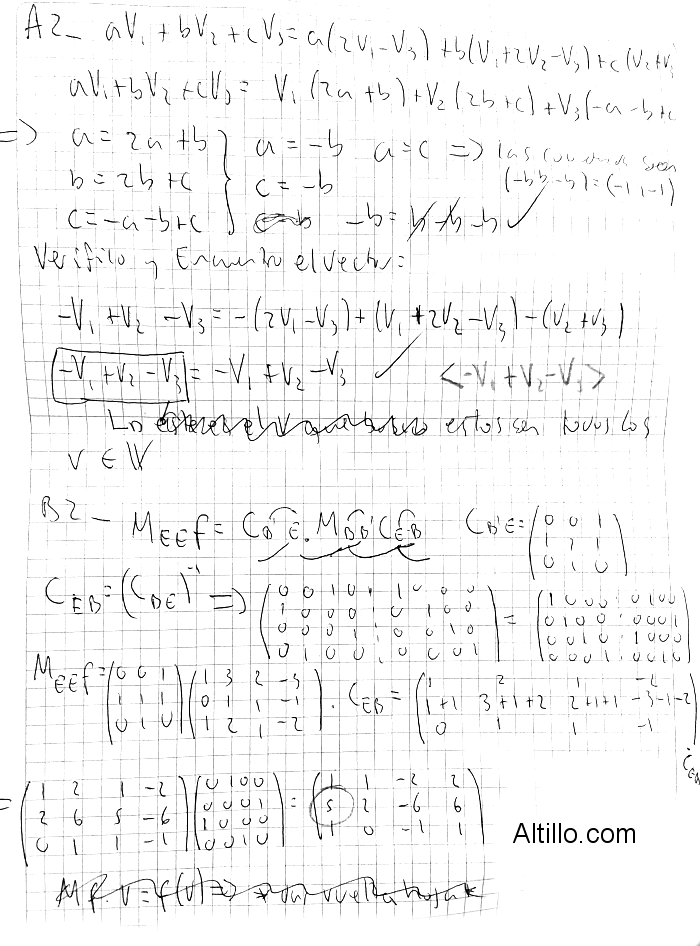 A2_ aV₁ + bV₂ + cV₃ = a(2V₁ - V₃) + b(V₁ + 2V₂ - V₃) + c(V₂ + V₃
aV₁ + bV₂ + cV₃ = V₁ (2a + b) + V₂ (2b + c) + V₃ (-a - b + c
=> a = 2a + b } a = -b a = c => las
b = 2b + c c = -b (-b b -b) = (-1 1 -1)
c = -a - b + c -b = b - b - b ✓
Verifico y Encuentro el vector:
-V₁ + V₂ - V₃ = -(2V₁ - V₃) + (V₁ + 2V₂ - V₃) - (V₂ + V₃)
-V₁ + V₂ - V₃ = -V₁ + V₂ - V₃ ✓ <-V₁ + V₂ - V₃>
estos son todos los
v ∈ V
B2_ M_EE f = C_B'E . M_BB' C_EB C_B'E = (0 0 1
1 1 1
0 1 0)
C_EB = (C_BE)⁻¹ => (0 0 1 0 | 1 0 0 0
1 0 0 0 | 0 1 0 0
0 0 0 1 | 0 0 1 0
0 1 0 0 | 0 0 0 1) = (1 0 0 0 | 0 1 0 0
0 1 0 0 | 0 0 0 1
0 0 1 0 | 1 0 0 0
0 0 0 1 | 0 0 1 0)
M_EE f = (0 0 1
1 1 1
0 1 0) (1 3 2 -3
0 1 1 -1
1 2 1 -2) . C_EB = (1 2 1 -2
1+1 3+1+2 2+1+1 -3-1-2
0 1 1 -1) . C_EB
= (1 2 1 -2
2 6 5 -6
0 1 1 -1) (0 1 0 0
0 0 0 1
1 0 0 0
0 0 1 0) = (1 1 -2 2
5 2 -6 6
1 0 -1 1)
Altillo.com
M f. v = f(v) =>